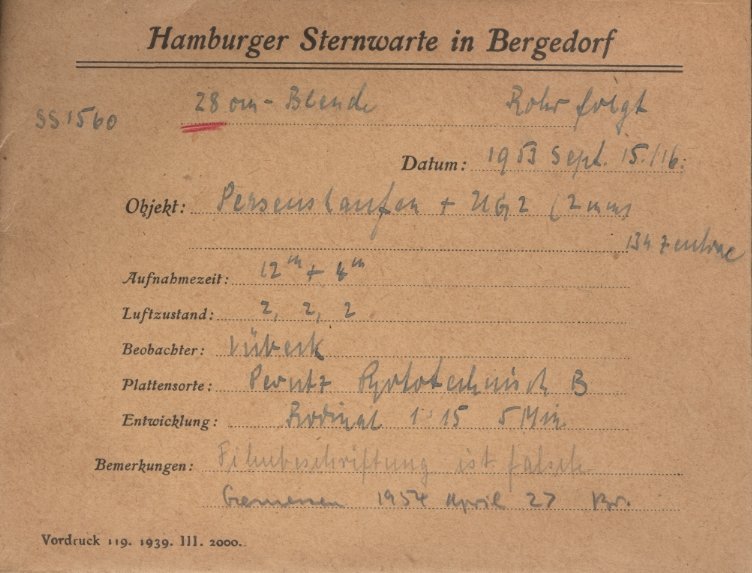 Hamburger Sternwarte in Bergedorf
28 cm - Blende Rohr folgt
SS1560
Datum: 1953 Sept. 15./16.
Objekt: Perseushaufen + UG2 (2mm)
134 Zentrae
Aufnahmezeit: 12m + 4m
Luftzustand: 2, 2, 2
Beobachter: Lübeck
Plattensorte: Perutz Phototechnisch B
Entwicklung: Rodinal 1:15 5 Min
Bemerkungen: Filmbeschriftung ist falsch
Gemessen 1954 April 27 Br.
Vordruck 119. 1939. III. 2000.